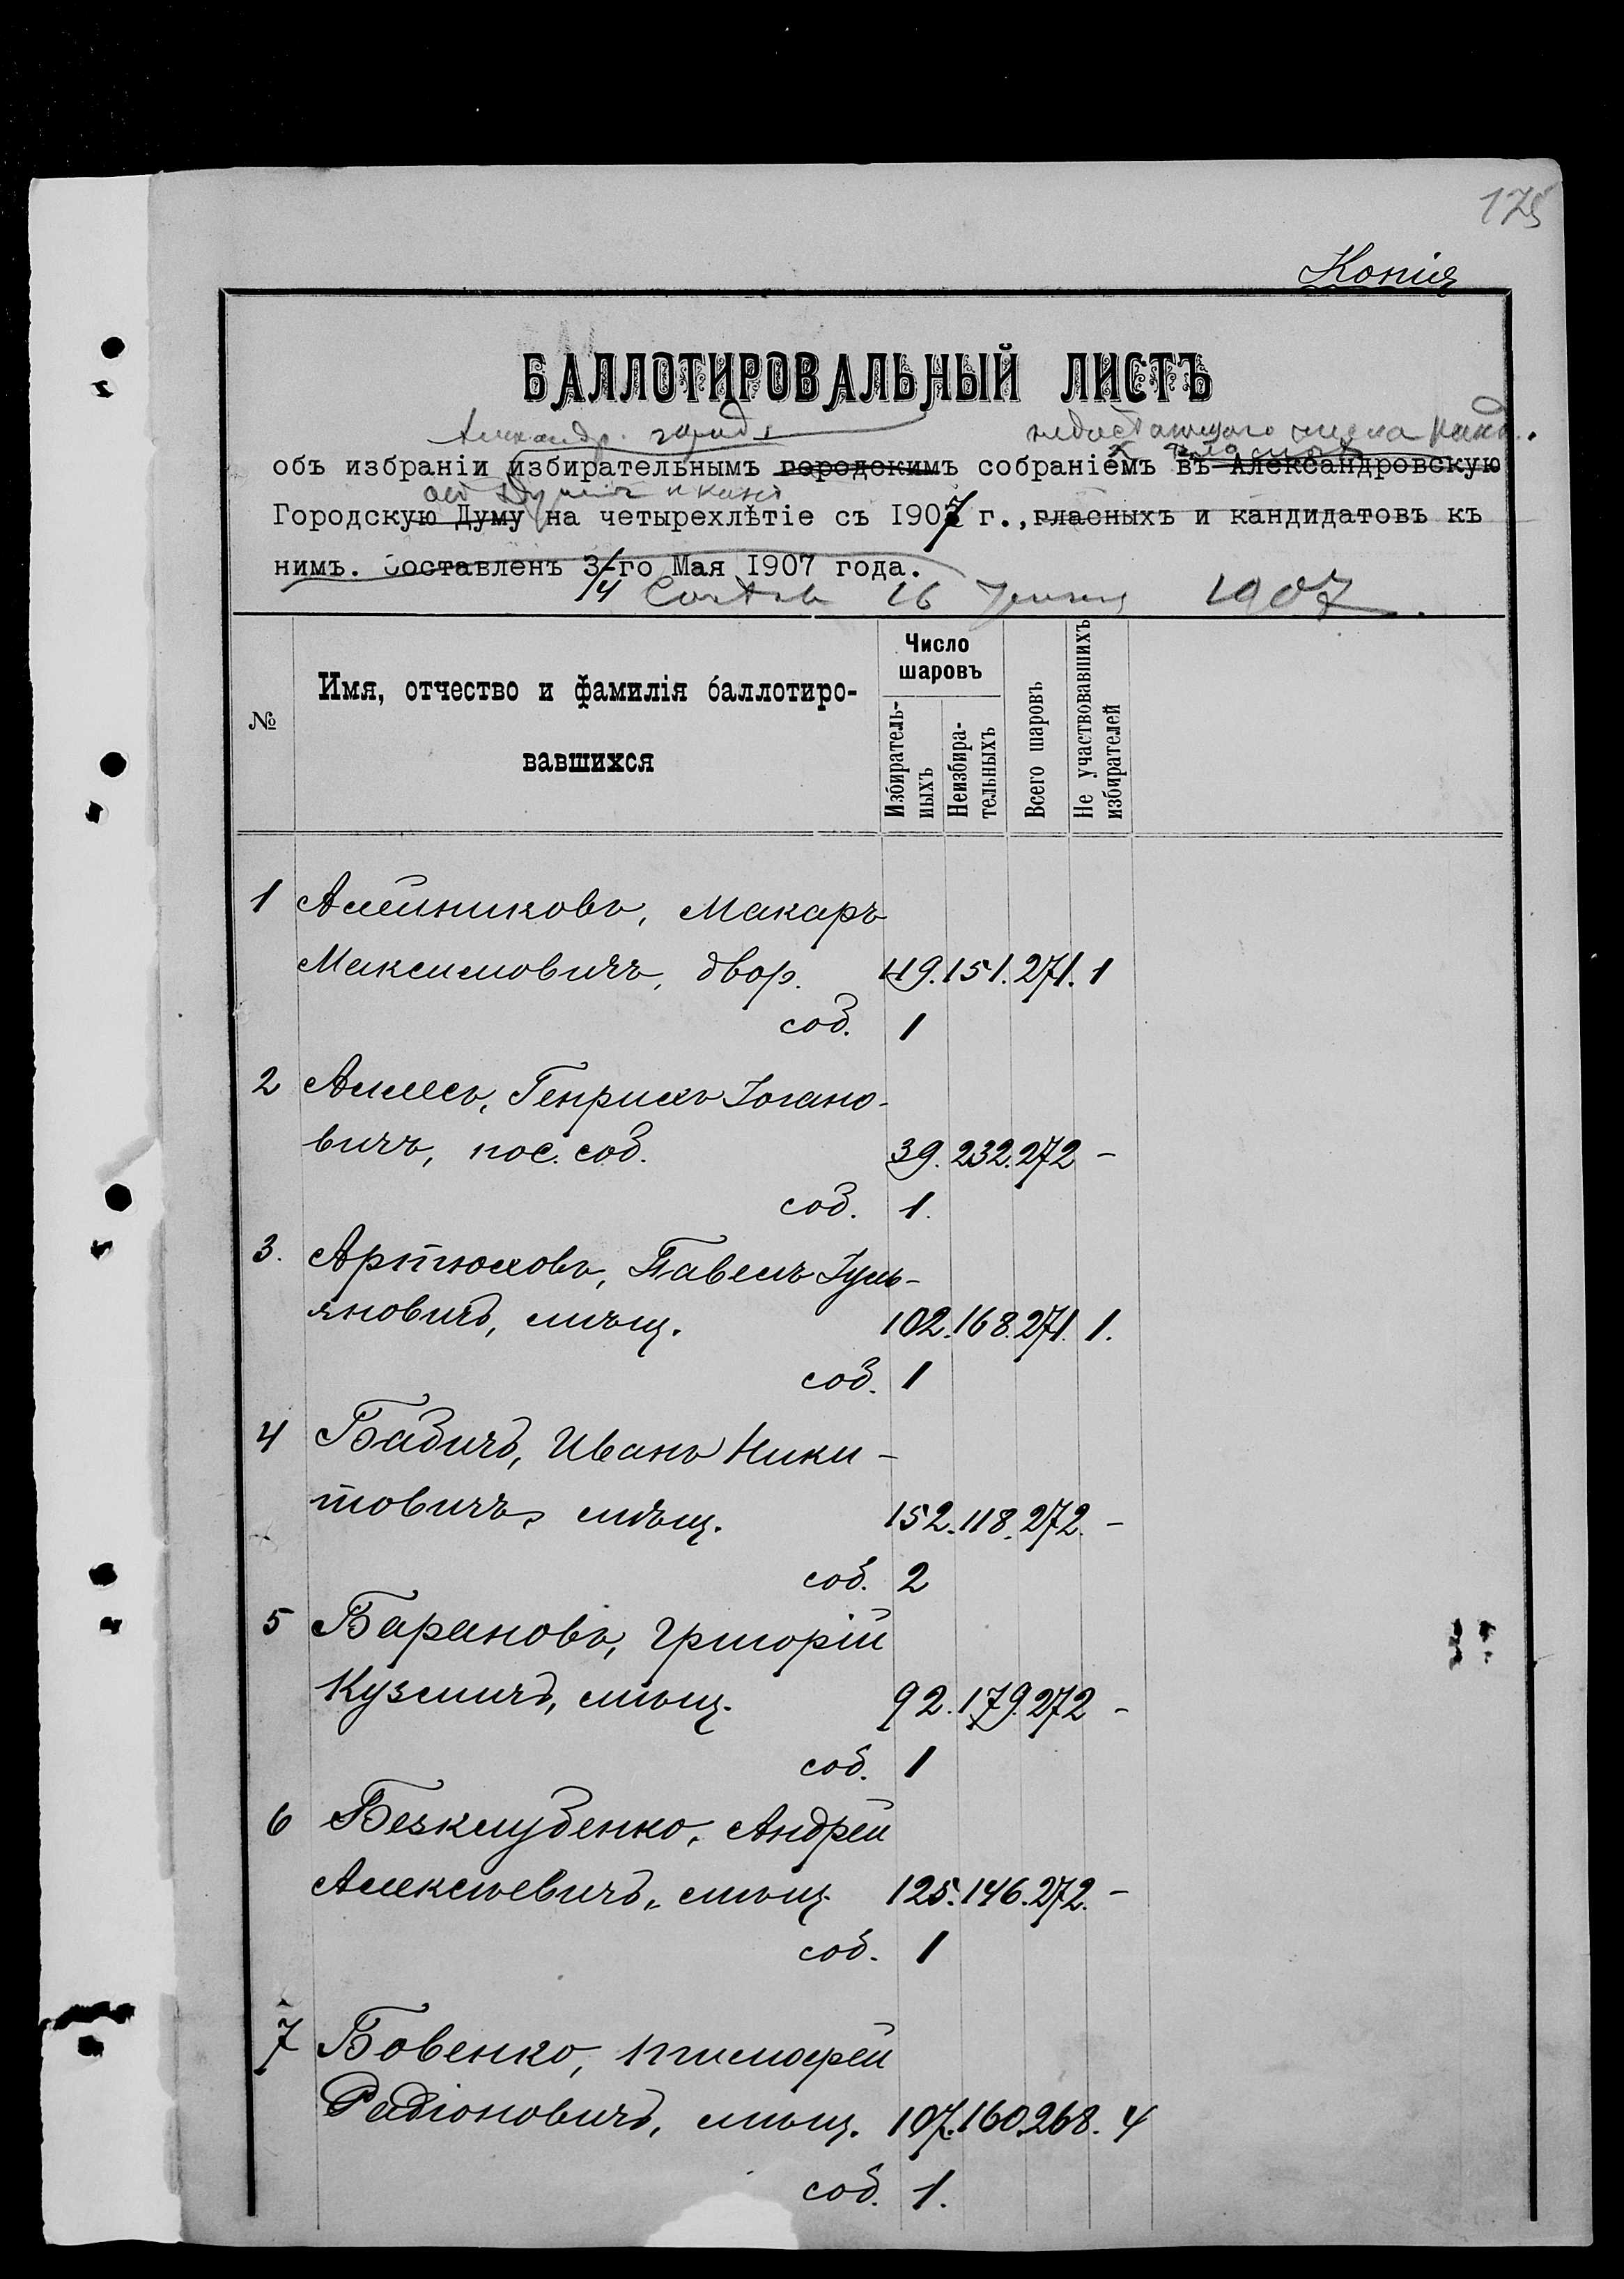 175
Копія
БАЛЛОТИРОВАЛЬНЫЙ ЛИСТЪ
Александр. городс
недостающаго числа канд.
объ избраніи избирательнымъ городскимъ собраніемъ въ Александровскую
Городскую Думу на четырехлѣтіе съ 1907 г., гласныхъ и кандидатовъ къ
нимъ. Составленъ 3/4-го Мая 1907 года.
16 1907.
№
Имя, отчество и фамилія баллотиро-
вавшихся
Число
шаровъ
Избиратель-
ныхъ
Неизбира-
тельныхъ
Всего шаровъ
Не участвовавшихъ
избирателей
1 Алейниковъ, Макаръ
Максимовичъ, двор. 119. 151. 271. 1
соб. 1
2 Аллесъ, Генрихъ Іогано-
вичъ, пос. соб. 39. 232. 272 -
соб. 1.
3. Артюховъ, Павелъ Іуль-
яновичъ, мѣщ. 102. 168. 271. 1.
соб. 1
4 Бабичъ, Иванъ Ники-
товичъ, мѣщ. 152. 118. 272. -
соб. 2
5 Барановъ, Григорій
Кузмичъ, мѣщ. 92. 179. 272 -
соб. 1
6 Безклубенко, Андрей
Алексѣевичъ, мѣщ. 125. 146. 272. -
соб. 1
7 Бовенко, Тимофей
Радіоновичъ, мѣщ. 107. 160. 268. 4
соб. 1.